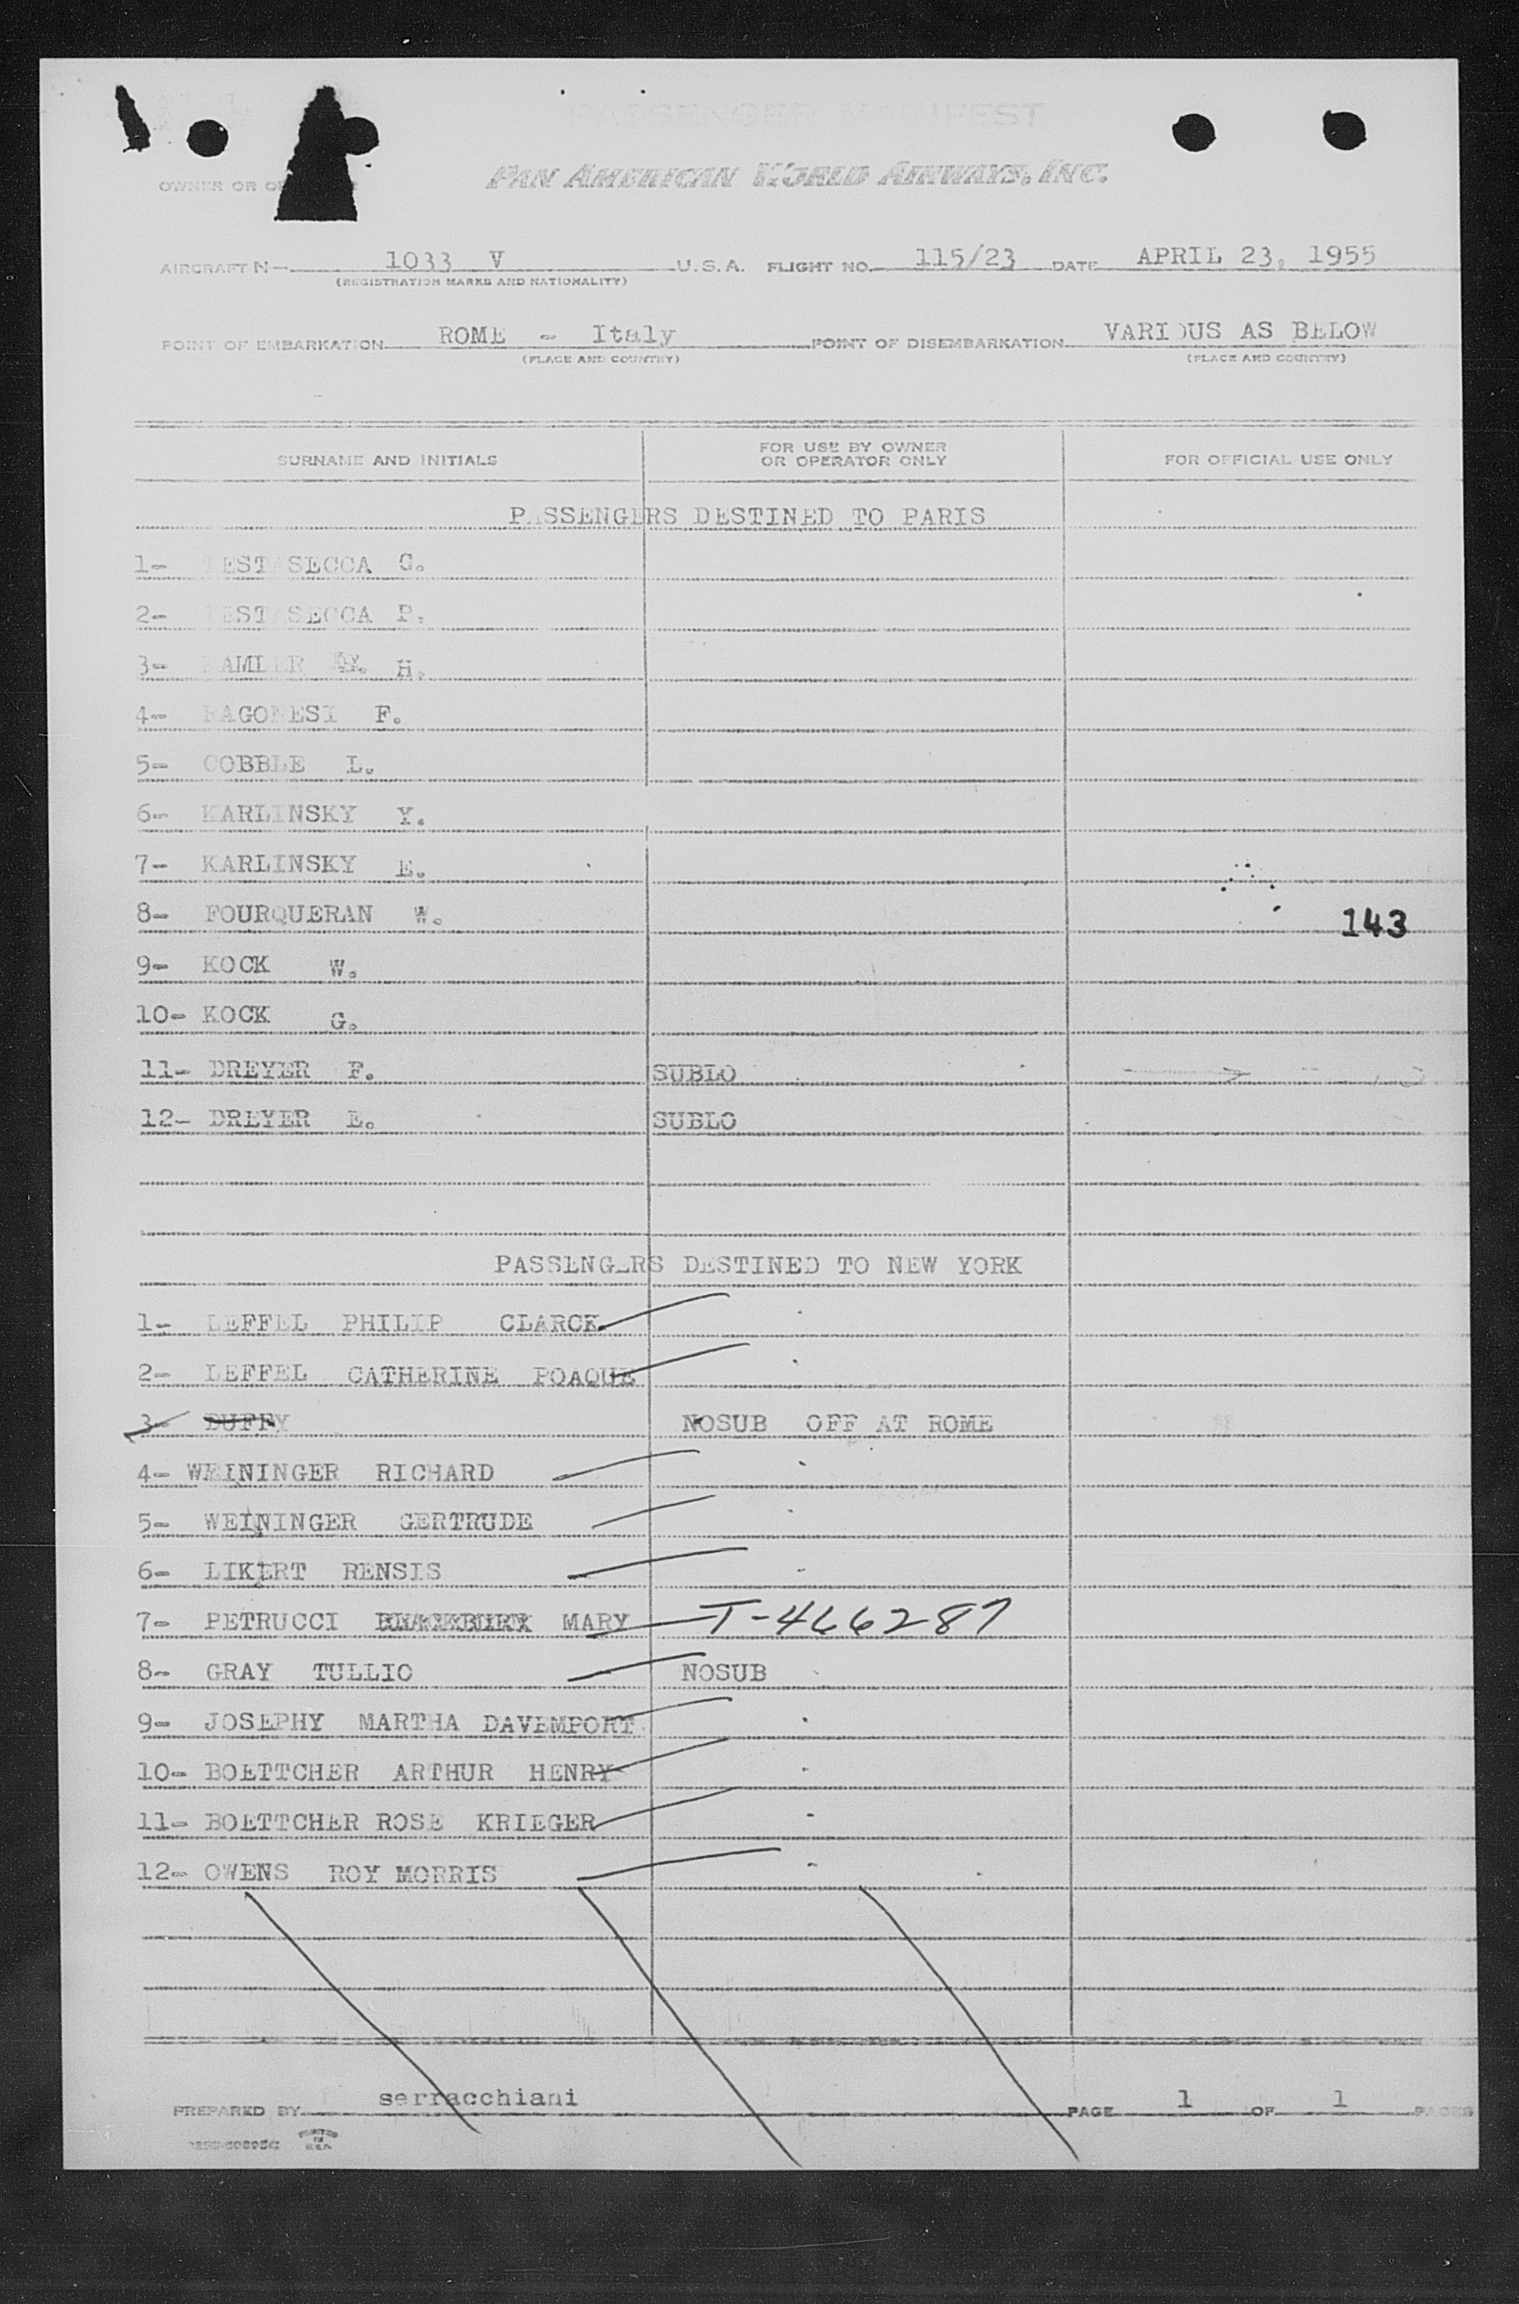 PASSENGER MANIFEST
OWNER OR
PAN AMERICAN WORLD AIRWAYS, INC.
AIRCRAFT N- 1033 V U.S.A. FLIGHT NO. 115/23 DATE APRIL 23, 1955
(REGISTRATION MARKS AND NATIONALITY)
POINT OF EMBARKATION ROME - Italy POINT OF DISEMBARKATION VARIOUS AS BELOW
(PLACE AND COUNTRY) (PLACE AND COUNTRY)
SURNAME AND INITIALS FOR USE BY OWNER OR OPERATOR ONLY FOR OFFICIAL USE ONLY
PASSENGERS DESTINED TO PARIS
1- TESTASECCA G.
2- TESTASECCA P.
3- H.
4- RAGONESI F.
5- COBBLE L.
6- KARLINSKY Y.
7- KARLINSKY E.
8- FOURQUERAN W. 143
9- KOCK W.
10- KOCK G.
11- DREYER F. SUBLO
12- DREYER E. SUBLO
PASSENGERS DESTINED TO NEW YORK
1- LEFFEL PHILIP CLARCK
2- LEFFEL CATHERINE POAQUE
3- DUFFY NOSUB OFF AT ROME
4- WEININGER RICHARD
5- WEININGER GERTRUDE
6- LIKERT RENSIS
7- PETRUCCI MARY T-466287
8- GRAY TULLIO NOSUB
9- JOSEPHY MARTHA DAVEMPORT
10- BOETTCHER ARTHUR HENRY
11- BOETTCHER ROSE KRIEGER
12- OWENS ROY MORRIS
PREPARED BY serracchiani PAGE 1 OF 1 PAGES
PRINTED IN U.S.A.